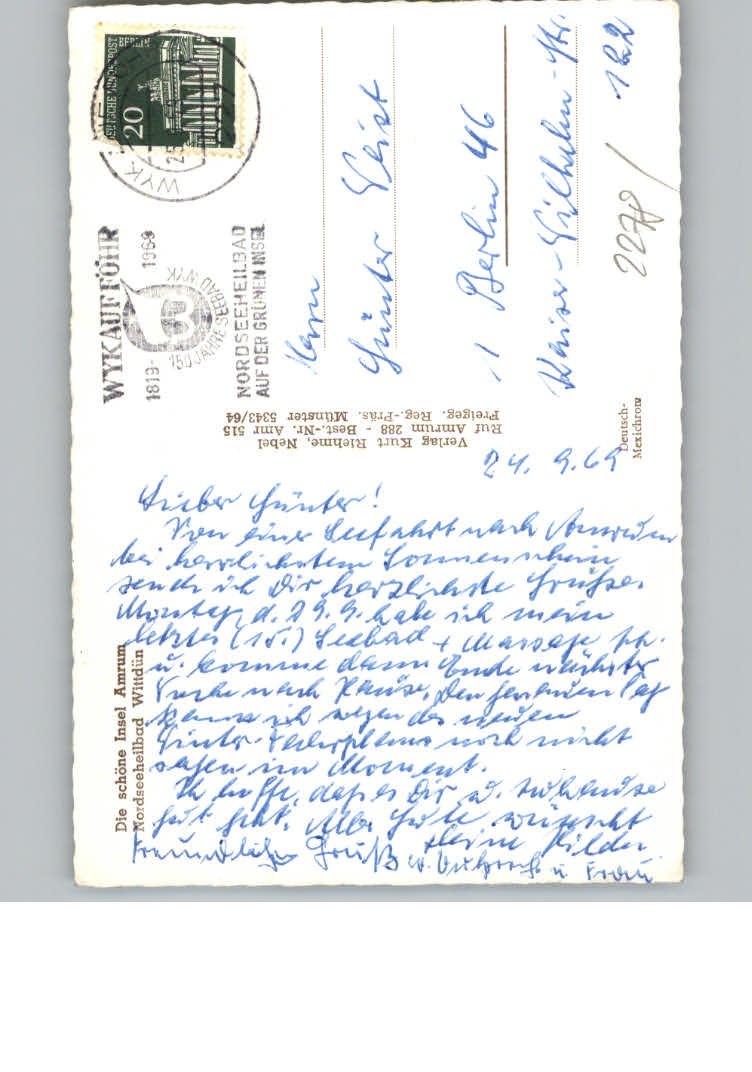 Die schöne Insel Amrum
Nordseeheilbad Wittdün
24. 9. 69
Lieber Günter!
Von einer Seefahrt nach Amrum
bei herrlichstem Sonnenschein
sende ich Dir herzlichste Grüße.
Montag, d. 29. 9. habe ich mein
letztes (15.) Seebad + Massage
u. komme dann Ende nächster
Woche nach Hause. Den genauen Tag
kann ich wegen des neuen
Winter-Fahrplans noch nicht
sagen im Moment.
Ich hoffe, daß es Dir u. zuhause
gut geht. Alles Gute wünscht
Deine Hilde
Freundlichen Gruß u Frau
Verlag Kurt Riehme, Nebel
Ruf Amrum 288 - Best.-Nr. Amr 515
Freigeg. Reg.-Präs. Münster 5343/64
Deutsch-
Mexichrom
WYK AUF FÖHR
1819-1969
150 JAHRE SEEBAD WYK
NORDSEEHEILBAD
AUF DER GRÜNEN INSEL
DEUTSCHE BUNDESPOST
BERLIN
20
WYK
2270
Herrn
Günter Geist
1 Berlin 46
Kaiser-Wilhelm-Str.
122